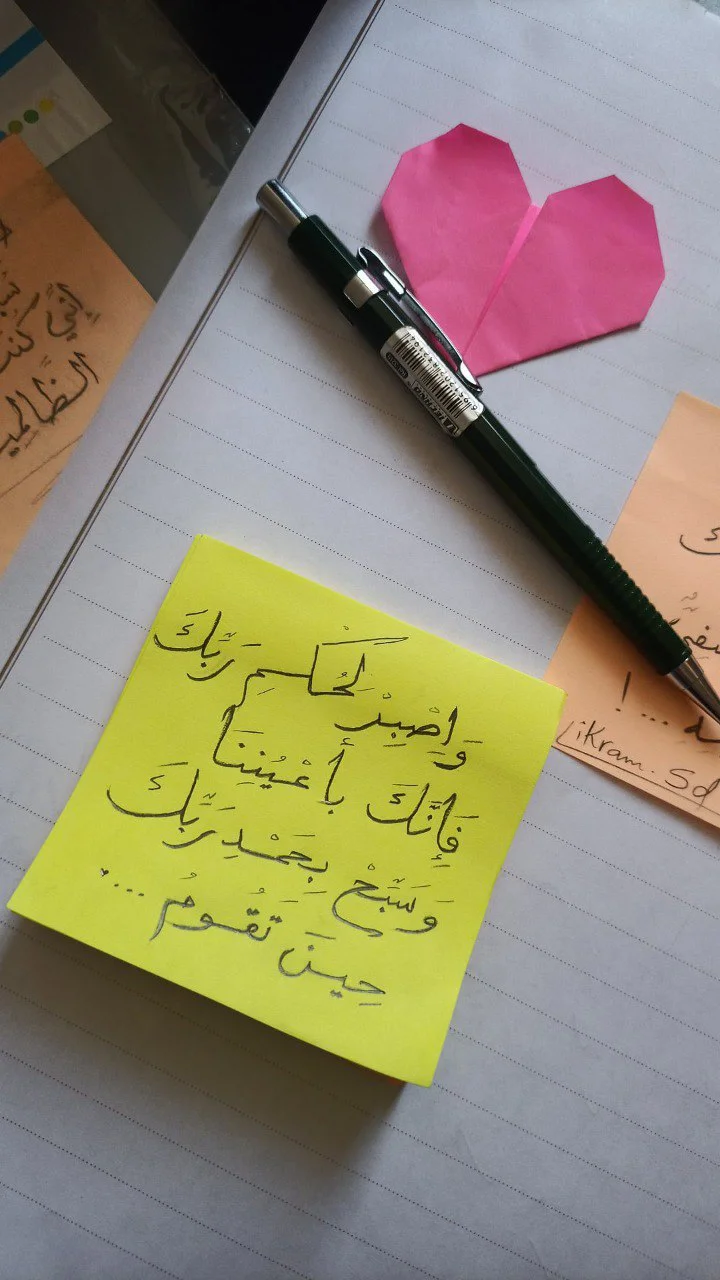 وَاِصْبِرْ لِحُكْمِ رَبِّكَ
فَإِنَّكَ بِأَعْيُنِنَا
وَسَبِّحْ بِحَمْدِ رَبِّكَ
حِينَ تَقُومُ ....
إِنِّي كنت
الظالمين
! ...
ikram. Sd